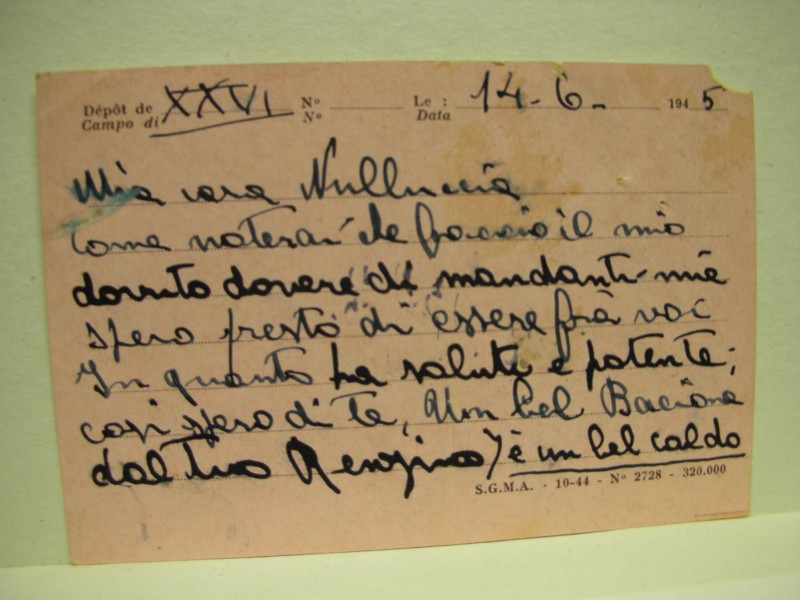 Dépôt de XXVI Nº Le : 14-6- 1945
Campo di Nº Data
Mia cara Nulluccia
Come noterai che faccio il mio
dovuto dovere di mandanti-mie
spero presto di essere fra voi
In quanto ha salute è potente;
cosi spero di te, Un bel Bacione
dal tuo Renzino è un bel caldo
S.G.M.A. - 10-44 - Nº 2728 - 320.000